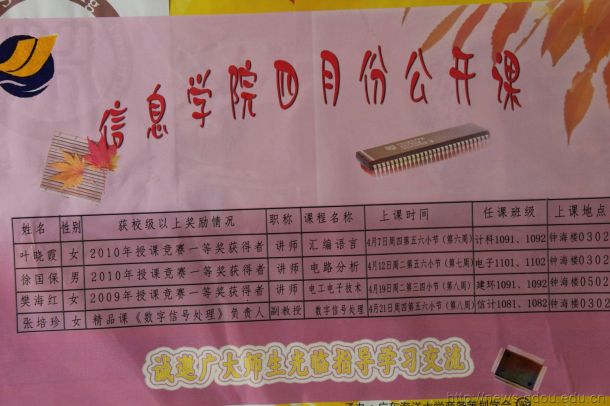 信息学院四月份公开课
姓名 性别 获校级以上奖励情况 职称 课程名称 上课时间 任课班级 上课地点
叶晓霞 女 2010年授课竞赛一等奖获得者 讲师 汇编语言 4月7日周四第五六小节(第六周) 计科1091、1092 钟海楼0302
徐国保 男 2010年授课竞赛一等奖获得者 讲师 电路分析 4月12日周二第五六小节(第七周) 电子1101、1102 钟海楼0302
樊海红 女 2009年授课竞赛一等奖获得者 讲师 电工电子技术 4月19日周二第三四小节(第八周) 建环1091、1092 钟海楼0502
张培珍 女 精品课《数字信号处理》负责人 副教授 数字信号处理 4月21日周四第五六小节(第八周) 信计1081、1082 钟海楼0302
诚邀广大师生光临指导学习交流
http://news.gdou.edu.cn